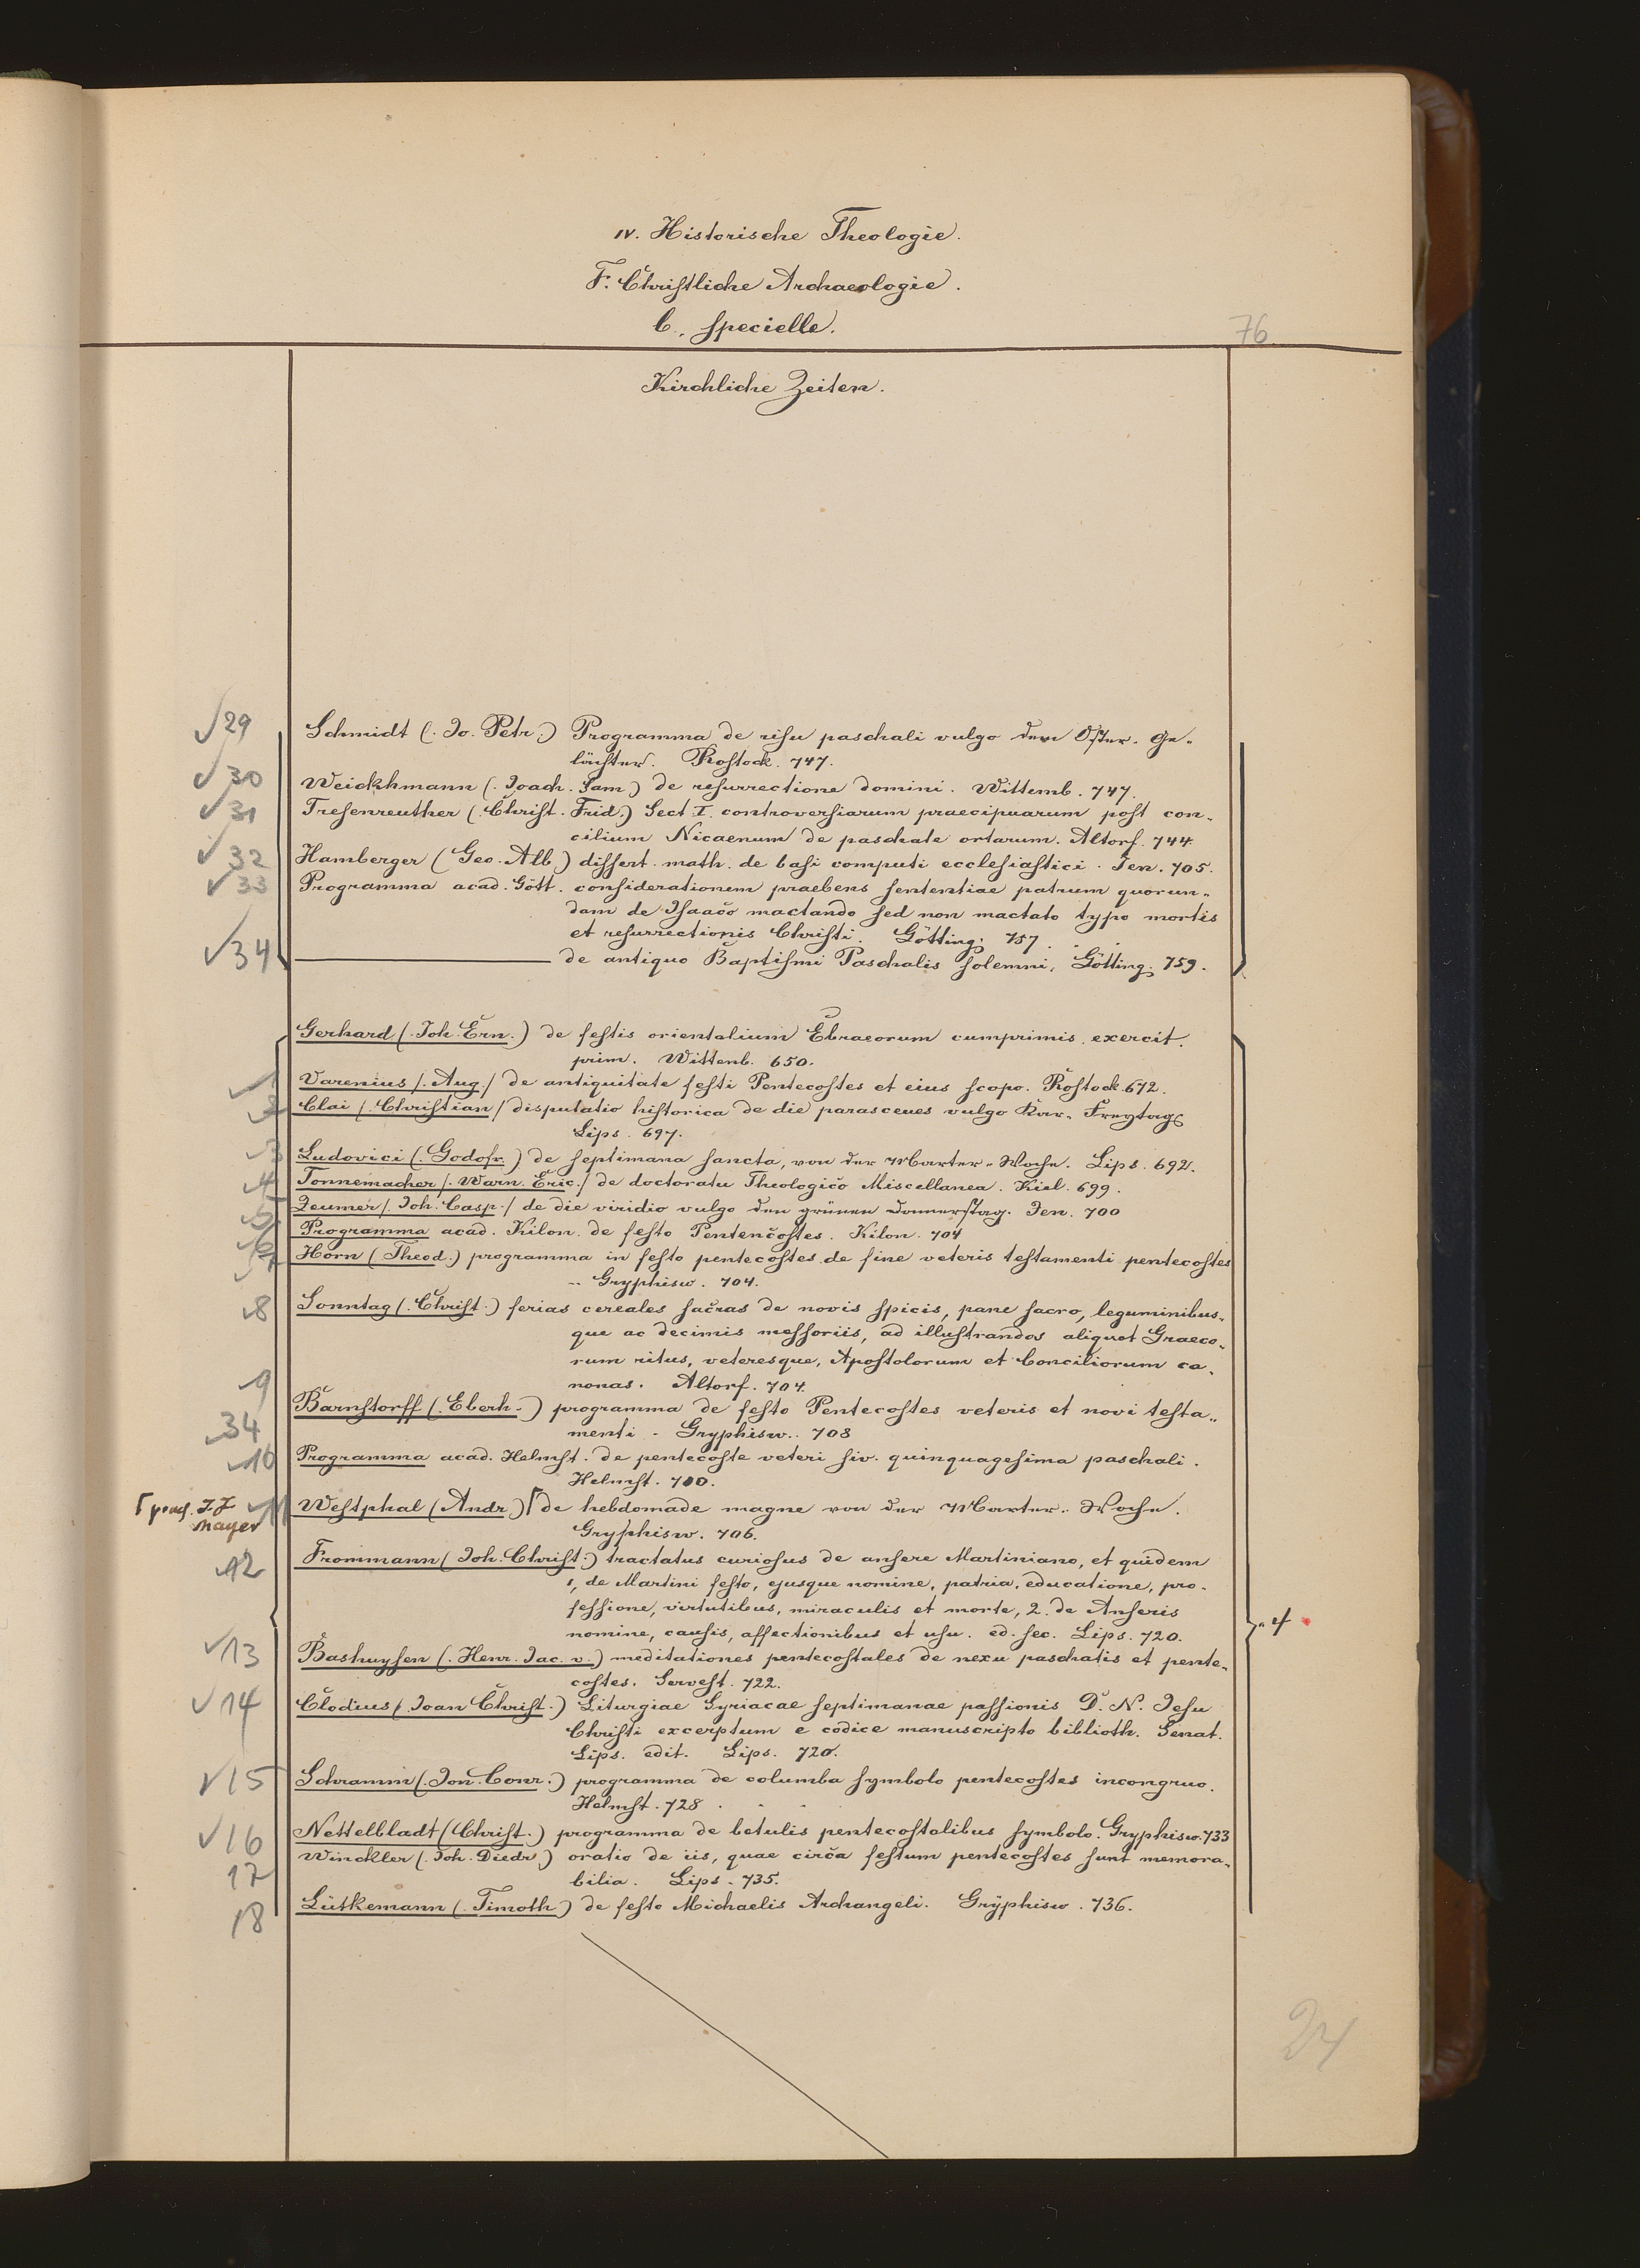 IV. Historische Theologie.
F. Christliche Archaeologie.
b., specielle.
76
Kirchliche Zeiten.
29 Schmidt (. Jo. Petr.) Programma de risu paschali vulgo dem Oster-Ge-
lächter. Rostock. 747.
30 Weickhmann (. Joach. Sam.) de resurrectione domini. Wittemb. 747.
31 Tresenreuther (. Christ. Frid.) Sect I. controversiarum praecipuarum post con-
cilium Nicaenum de paschate ortarum. Altorf. 744.
32 Hamberger (Geo. Alb.) dissert. math. de basi computi ecclesiastici. Jen. 705.
33 Programma acad. Gött. considerationem praebens sententiae patrum quorun-
dam de Isaaco mactando sed non mactato typo mortis
et resurrectionis Christi. Götting. 757.
34 ——— de antiquo Baptismi Paschalis solemni, Götting. 759.
Gerhard (. Joh. Ern.) de festis orientalium Ebraeorum cumprimis. exercit.
prim. Wittenb. 650.
1 Varenius /. Aug./ de antiquitate festi Pentecostes et eius scopo. Rostock. 672.
2 Clai /. Christian/ disputatio historica de die parasceues vulgo Kar-Freytag
Lips. 697.
3 Ludovici (. Godofr.) de septimana sancta, von der Marter-Woche. Lips. 692.
4 Tonnemacher /. Warn. Eric./ de doctoratu Theologico Miscellanea. Kiel. 699.
5 Zeumer /. Joh. Casp./ de die viridio vulgo den grünen Donnerstag. Jen. 700
6 Programma acad. Kilon. de festo Pentencostes. Kilon. 704
7 Horn (Theod.) programma in festo pentecostes de fine veteris testamenti pentecostes
-- Gryphisw. 704.
8 Sonntag (. Christ.) ferias cereales sacras de novis spicis, pane sacro, leguminibus-
que ac decimis messoriis, ad illustrandos aliquot Graeco-
rum ritus, veteresque, Apostolorum et Conciliorum ca-
nonas. Altorf. 704.
9 Barnstorff (. Eberh.) programma de festo Pentecostes veteris et novi testa-
34 menti - Gryphisw.. 708
10 Programma acad. Helmst. de pentecoste veteri siv. quinquagesima paschali.
Helmst. 700.
⌈praes. J. F. Mayer
11 Westphal (Andr.)⌈de hebdomade magne von der Marter-Woche.
Gryphisw. 706.
12 Frommann (Joh. Christ.) tractatus curiosus de ansere Martiniano, et quidem
1, de Martini festo, ejusque nomine, patria, educatione, pro-
fessione, virtutibus, miraculis et morte, 2. de Anseris
nomine, causis, affectionibus et usu. ed. sec. Lips. 720.
4
13 Bashuysen (. Henr. Jac. v.) meditationes pentecostales de nexu paschatis et pente-
costes. Servest. 722.
14 Clodius /. Joan Christ.) Liturgiae Syriacae septimanae passionis D. N. Jesu
Christi excerptum e codice manuscripto biblioth. Senat.
Lips. edit. Lips. 720.
15 Schramm (. Jon. Conr.) programma de columba symbolo pentecostes incongruo.
Helmst. 728.
16 Nettelbladt (Christ.) programma de betulis pentecostalibus symbolo. Gryphisw. 733
17 Winckler (. Joh. Diedr.) oratio de iis, quae circa festum pentecostes sunt memora-
bilia. Lips. 735.
18 Lütkemann (. Timoth) de festo Michaelis Archangeli. Gryphisw. 736.
24